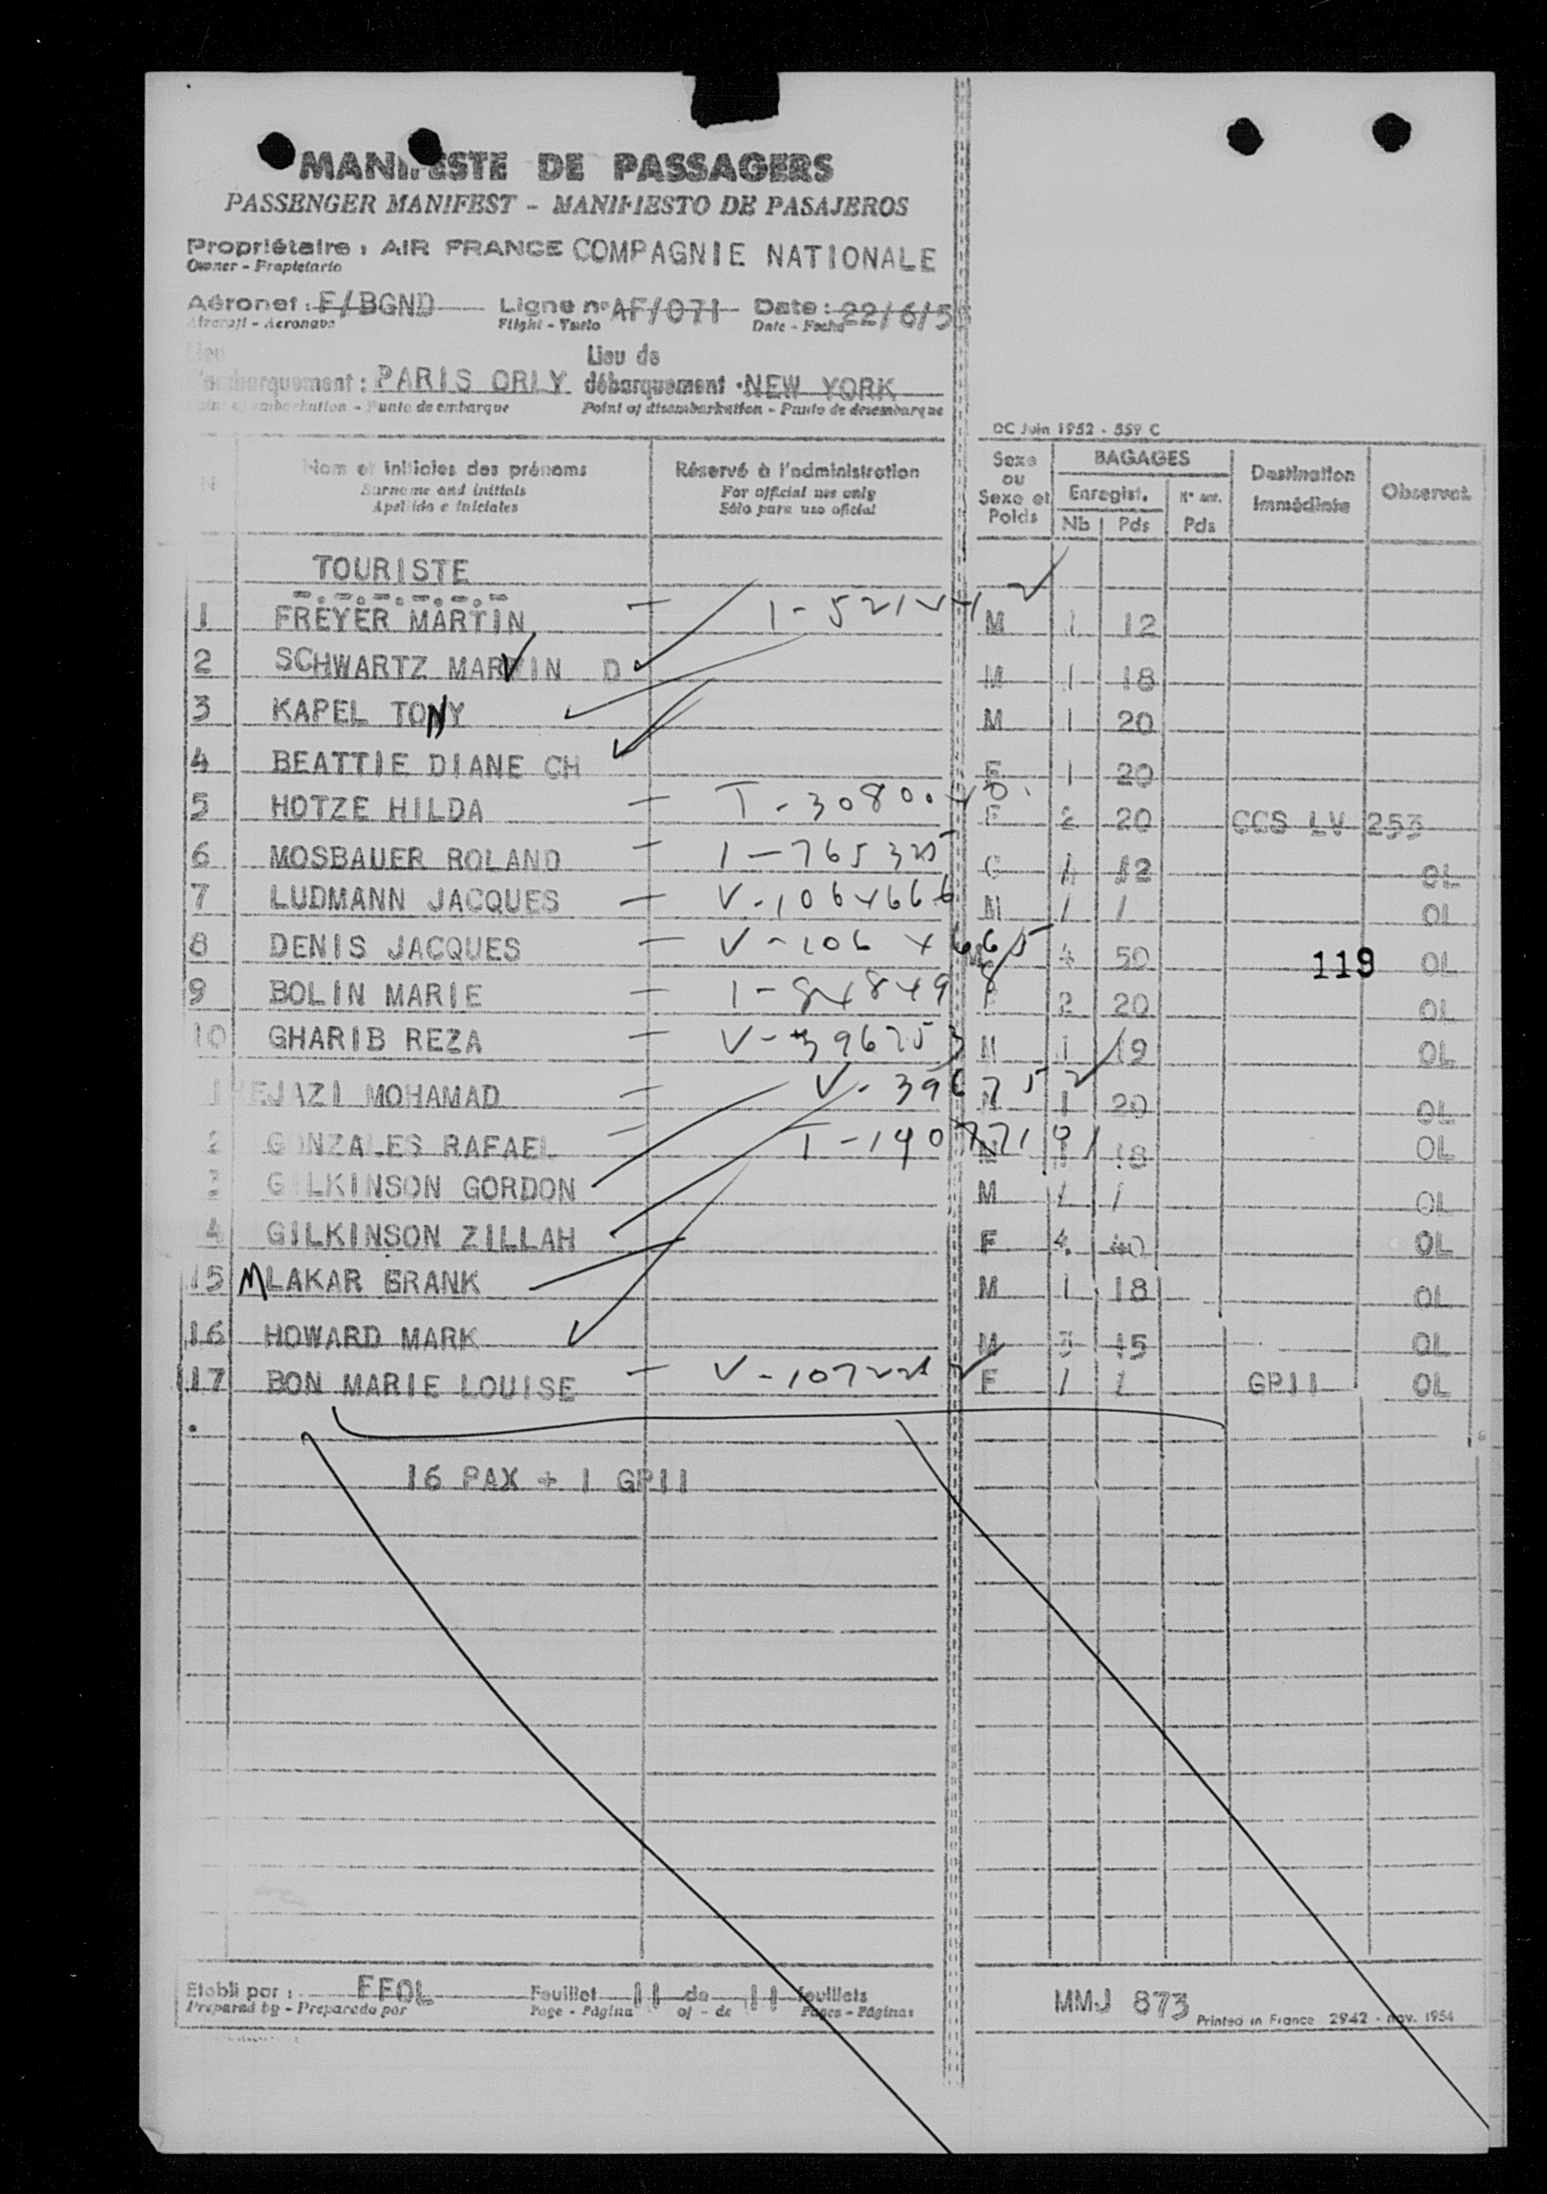 MANIFESTE DE PASSAGERS
PASSENGER MANIFEST - MANIFIESTO DE PASAJEROS
Propriétaire : AIR FRANCE COMPAGNIE NATIONALE
Owner - Propietario
Aéronef : F/BGND Ligne n° AF/071 Date : 22/6/5
Aircraft - Aeronave Flight - Vuelo Date - Fecha
Lieu d'embarquement : PARIS ORLY Lieu de débarquement : NEW YORK
Point of embarkation - Punto de embarque Point of disembarkation - Punto de desembarque
OC Juin 1952 - 559 C
N Nom et initiales des prénoms Réservé à l'administration Sexe ou Sexe et Poids BAGAGES Destination Immédiate Observat.
Surname and initials For official use only Enregist. N° enr.
Apellido e iniciales Sólo para uso oficial Nb Pds Pds
TOURISTE
1 FREYER MARTIN M 1 12
2 SCHWARTZ MARVIN D M 1 18
3 KAPEL TONY M 1 20
4 BEATTIE DIANE CH F 1 20
5 HOTZE HILDA F 2 20 CCS LV 253
6 MOSBAUER ROLAND 1-765325 C 1 12 OL
7 LUDMANN JACQUES V-1064666 M / / OL
8 DENIS JACQUES V-1064665 M 4 50 119 OL
9 BOLIN MARIE 1-848498 F 2 20 OL
10 GHARIB REZA V-396753 M 1 19 OL
1 HEJAZI MOHAMAD V-396752 M 1 20 OL
2 GONZALES RAFAEL M 1 18 OL
3 GILKINSON GORDON M / / OL
4 GILKINSON ZILLAH F 4 40 OL
15 MLAKAR BRANK M 1 18 OL
16 HOWARD MARK M 3 15 OL
17 BON MARIE LOUISE F / / GP11 OL
16 PAX + 1 GP11
Etabli par : FFOL Feuillet 11 de 11 feuillets
Prepared by - Preparado por Page - Página of - de Pages - Páginas
MMJ 873
Printed in France 2942 - nov. 1954